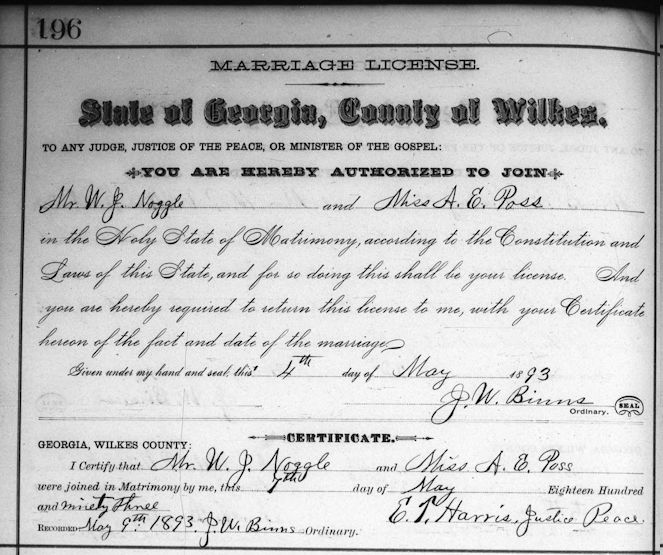 196
MARRIAGE LICENSE.
State of Georgia, County of Wilkes.
TO ANY JUDGE, JUSTICE OF THE PEACE, OR MINISTER OF THE GOSPEL:
YOU ARE HEREBY AUTHORIZED TO JOIN
Mr. W. J. Noggle and Miss A. E. Poss
in the Holy State of Matrimony, according to the Constitution and
Laws of this State, and for so doing this shall be your license. And
you are hereby required to return this license to me, with your Certificate
hereon of the fact and date of the marriage.
Given under my hand and seal, this 4th day of May 1893
J. W. Binns
Ordinary. SEAL
CERTIFICATE.
GEORGIA, WILKES COUNTY:
I Certify that Mr. W. J. Noggle and Miss A. E. Poss
were joined in Matrimony by me, this day of May Eighteen Hundred
and ninety three E. T. Harris, Justice Peace.
RECORDED May 9th 1893. J. W. Binns Ordinary.